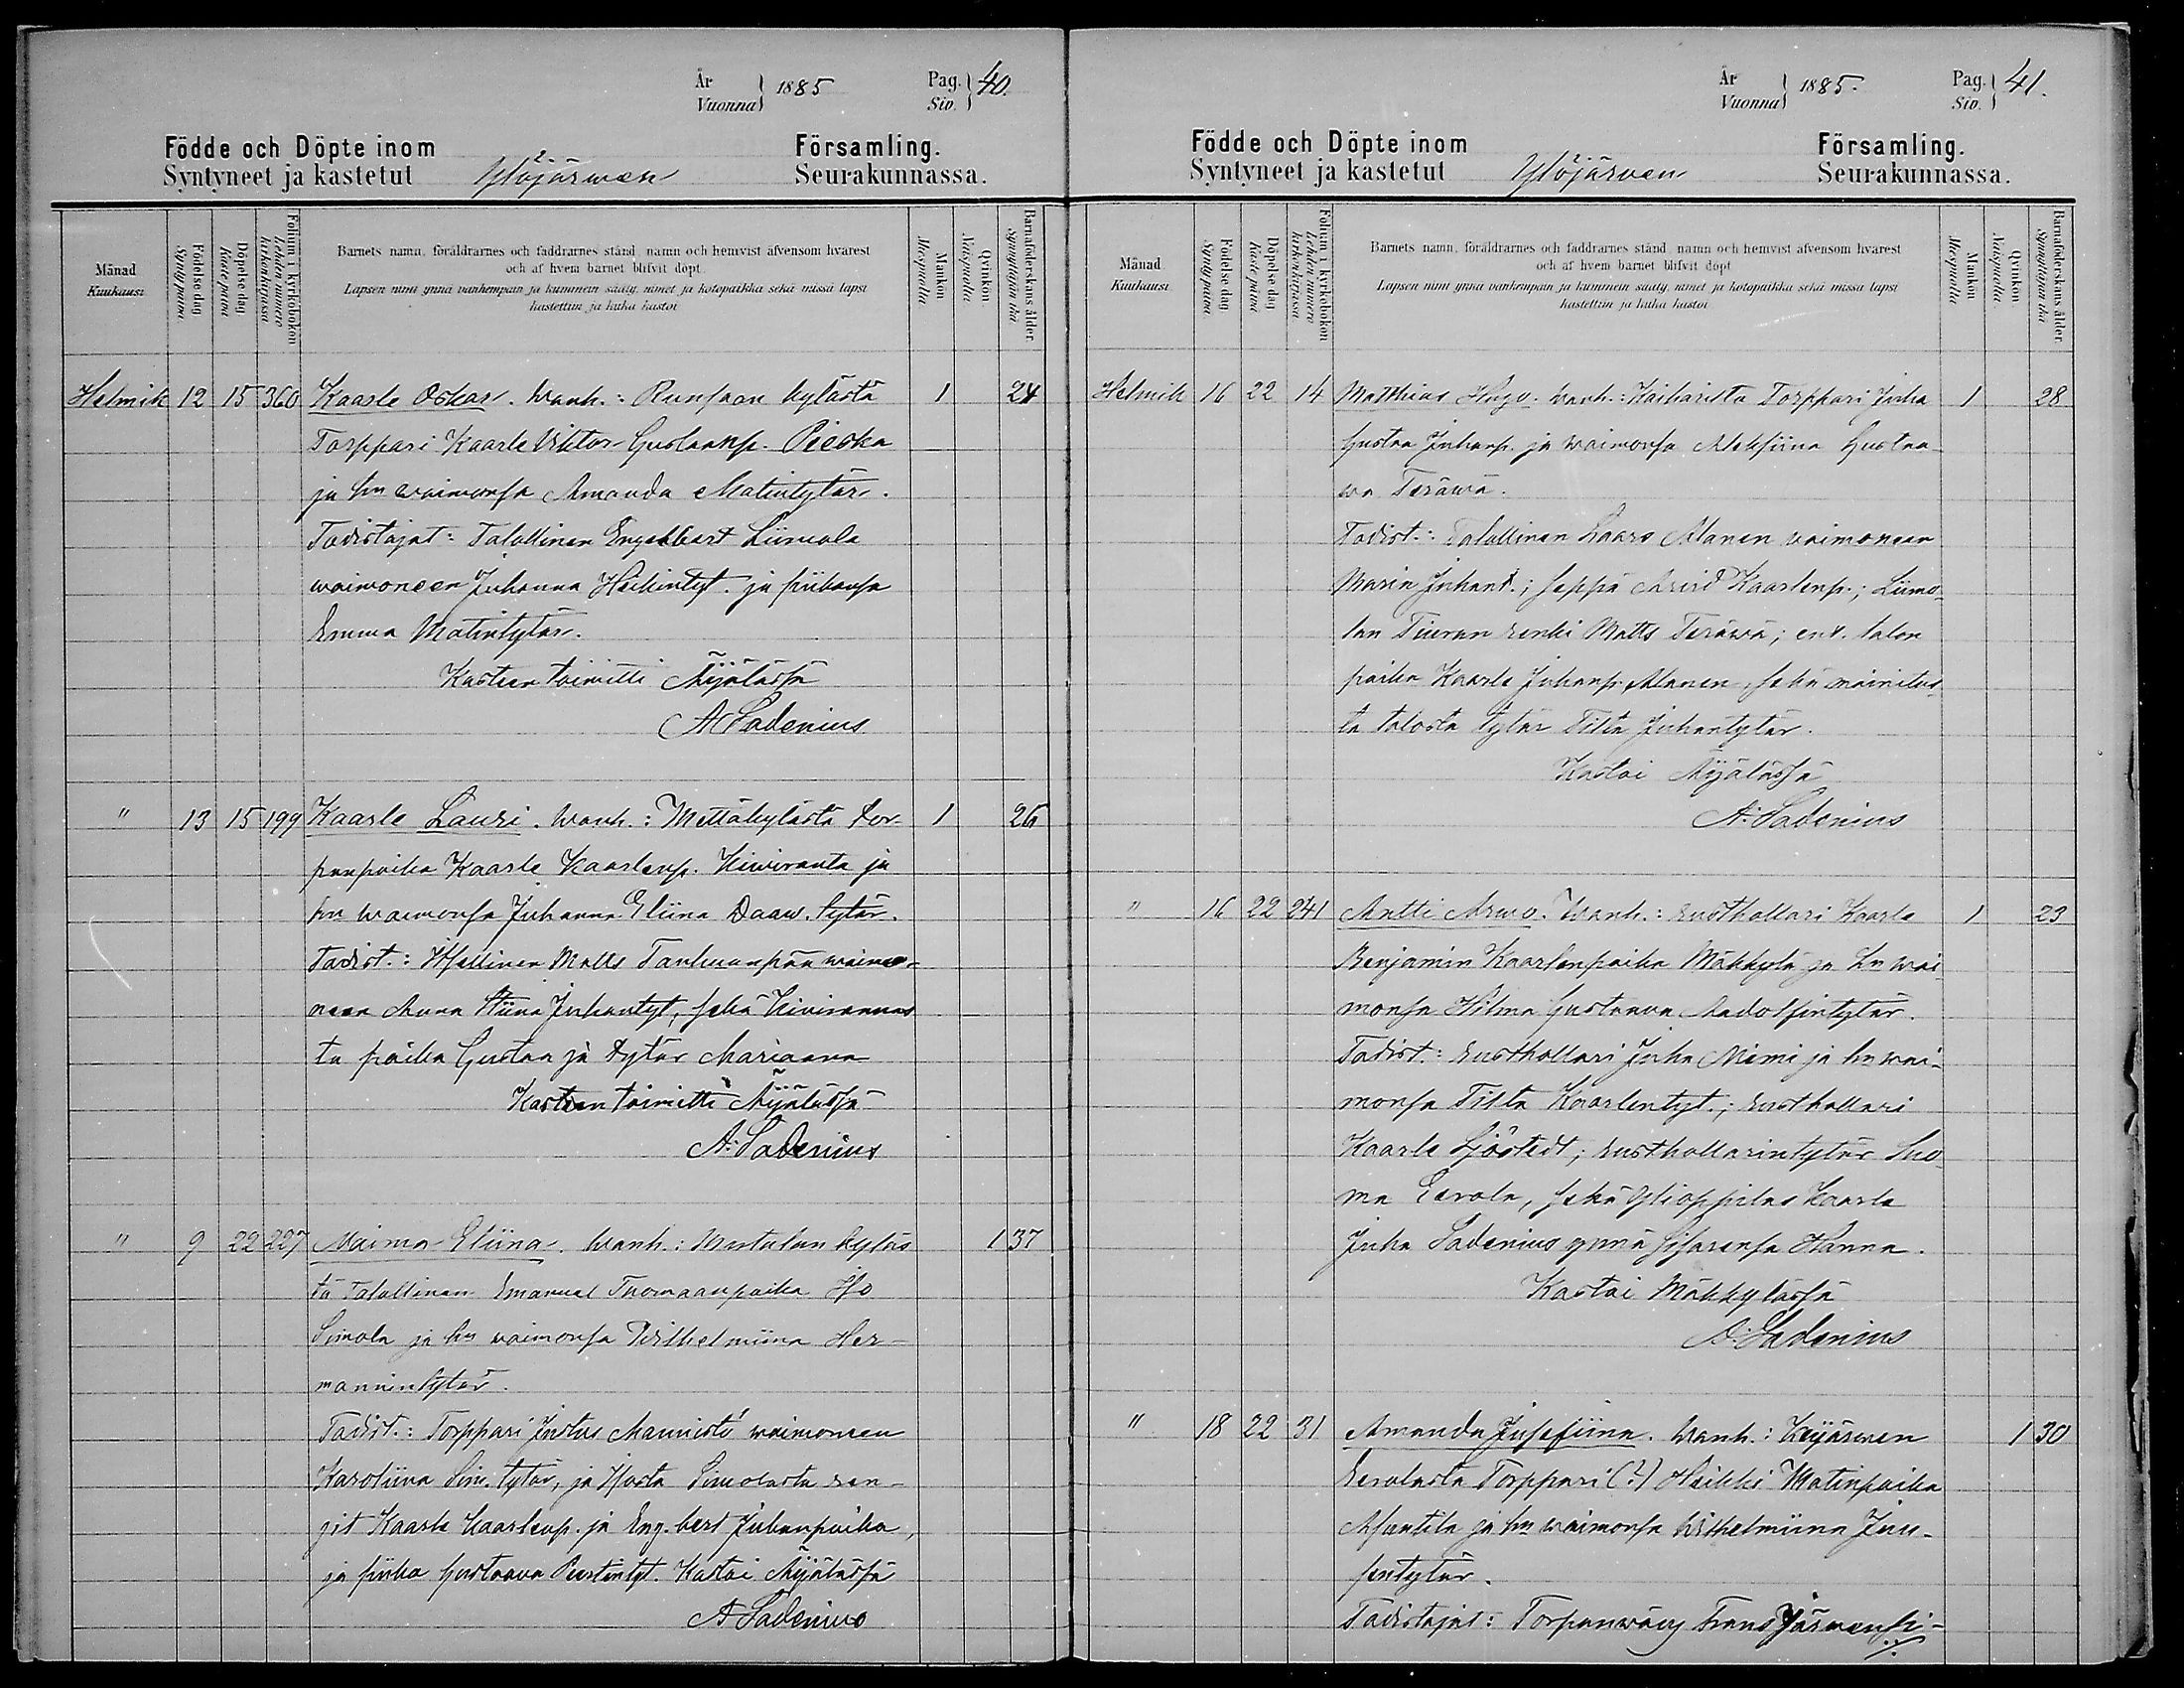 År
Vuonna } 1885
Pag.
Siv. } 40.
Födde och Döpte inom
Syntyneet ja kastetut
Ylöjärwen
Församling.
Seurakunnassa.
Månad
Kuukausi
Födelse dag
Syntypäivä
Döpelse dag
Kaste päivä
Folium i kyrkoboken
Lehden numero kirkonkirjassa
Barnets namn, föräldrarnes och faddrarnes stånd, namn och hemvist äfvensom hvarest
och af hvem barnet blifvit döpt.
Lapsen nimi ynnä vanhempain ja kummein sääty, nimet ja kotopaikka sekä missä lapsi
kastettiin ja kuka kastoi
Mankön
Miespuolia
Qvinkön
Vaispuolia
Barnaföderskans ålder
Synnyttäjän ikä
Helmik 12 15 360 Kaarle Oskar. Wanh.: Runsaan kylästä 1 24
Torppari Kaarle Viktor Gustaanp. Pieska
ja hn waimonsa Amanda Matintytär.
Todistajat: Talollinen Engelbert Liimola
waimoneen Juhanna Heikintyt. ja piikansa
Emma Matintytär.
Kasteen toimitti Äijälässä
A Ladenius
" 13 15 199 Kaarle Lauri. Wanh.: Mettäkylästä tor- 1 26
panpoika Kaarle Kaarlenp. Kiwiranta ja
hn waimonsa Juhanna Eliina Daaw. tytär.
Todist.: Itsellinen Matts Tanhuanpää waimo-
neen Anna Stiina Juhantyt, sekä Kivirannas
ta poika Gustaa ja tytär Mariaana
Kasteen toimitti Äijälässä
A. Ladenius
" 9 22 227 Maima Eliina. Wanh.: Mutalan kyläs 1 37
tä Talollinen Emanuel Tuomaanpoika Iso
Simola ja hn vaimonsa Wilhelmiina Her-
mannintytär.
Todist.: Torppari Justus Mannistö waimoneen
Karoliina Sim. tytär, ja Isosta Simolasta ren-
git Kaarle Kaarlenp. ja Eng.bert Juhanpoika,
ja piika Gustaava Kustintyt. Kastoi Äijälässä
A Ladenius
År
Vuonna } 1885.
Pag.
Siv. } 41.
Födde och Döpte inom
Syntyneet ja kastetut
Ylöjärven
Församling.
Seurakunnassa.
Månad
Kuukausi
Födelse dag
Syntypäivä
Döpelse dag
Kaste päivä
Folium i kyrkoboken
Lehden numero kirkonkirjassa
Barnets namn, föräldrarnes och faddrarnes stånd, namn och hemvist äfvensom hvarest
och af hvem barnet blifvit döpt
Lapsen nimi ynnä vanhempain ja kummein sääty, nimet ja kotopaikka sekä missä lapsi
kastettiin ja kuka kastoi
Mankön
Miespuolia
Qvinkön
Vaispuolia
Barnaföderskans ålder
Synnyttäjän ikä
Helmik 16 22 14 Matthias Hugo. Wanh.: Kaiharista Torppari Juha 1 28
Gustaa Juhanp. ja waimonsa Aleksiina Gustaa-
wa Teräwä.
Todist.: Talollinen Laars Alanen vaimoneen
Marin Juhant.; seppä Arvid Kaarlenp.; Liimo-
lan Tiuran renki Matts Teräwä; ent. talon
poika Kaarle Juhanp. Alanen, sekä mainitus
ta talosta tytär Tilta Juhantytär.
Kastoi Äijälässä
A. Ladenius
" 16 22 241 Antti Arwo. Wanh.: rusthollari Kaarle 1 23
Benjamin Kaarlenpoika Mäkkylä ja hn wai
monsa Hilma Gustaava Aadolfintytär.
Todist.: rusthollari Juha Niemi ja hn wai-
monsa Tilta Kaarlentyt.; rusthollari
Kaarle Sjöstedt; rusthollarintytär Suo
ma Eerola, sekä Ylioppilas Kaarle
Juha Ladenius ynnä sisarensa Hanna.
Kastoi Mäkkylässä
A. Ladenius
" 18 22 31 Amanda Josefiina. Wanh.: Keijärwen 1 30
Eerolasta Torppari (?) Heikki Matinpoika
Mantila ja hn waimonsa Wilhelmiina Juu-
sentytär.
Todistajat: Torpanwäy Frans Järwensi-